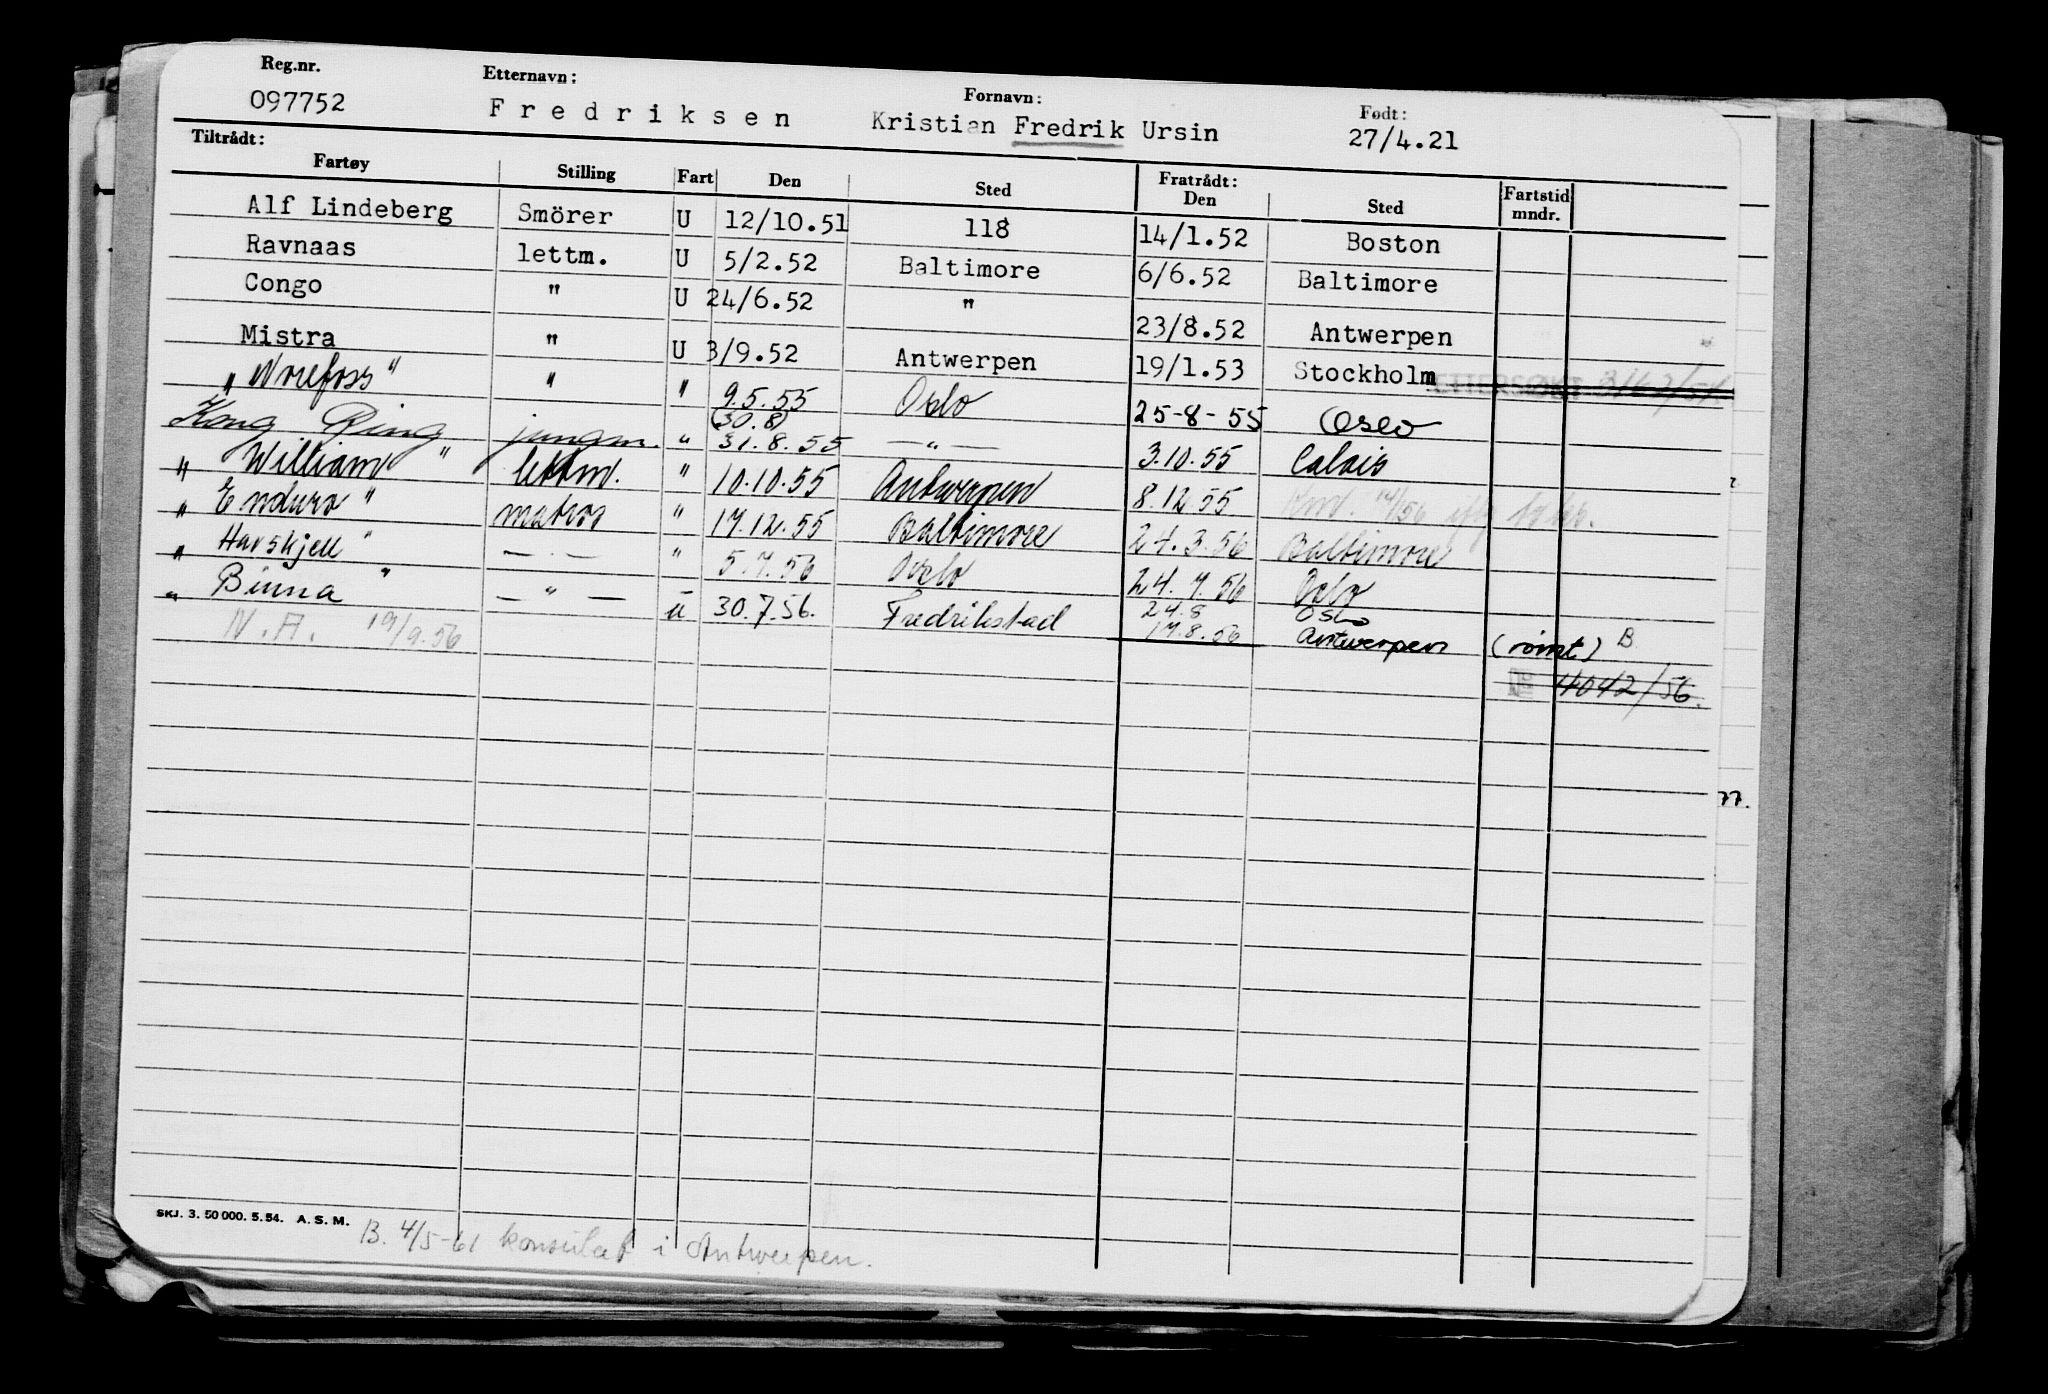 Reg.nr. Etternavn: Fornavn: Født:
097752 Fredriksen Kristian Fredrik Ursin 27/4.21
Tiltrådt: Fratrådt:
Fartøy Stilling Fart Den Sted Den Sted Fartstid mndr.
Alf Lindeberg Smörer U 12/10.51 118 14/1.52 Boston
Ravnaas lettm. U 5/2.52 Baltimore 6/6.52 Baltimore
Congo " U 24/6.52 " 23/8.52 Antwerpen
Mistra " U 3/9.52 Antwerpen 19/1.53 Stockholm
"Norefoss" " " 9.5.55 Oslo 25-8-55 Oslo
(30.8)
Kong Ring jungm. " 31.8.55 — " — 3.10.55 Calais
" William " lettm. " 10.10.55 Antwerpen 8.12.55
" Enduro " matros " 17.12.55 Baltimore 24.3.56 Baltimore
" Havskjell " — " — " 5.7.56 Oslo 24.7.56 Oslo
" Binna " — " — u 30.7.56. Fredrikstad 24.8 Oslo
N.A. 19/9.56 17.8.56 Antwerpen (rømt) B
4042/56.
77.
SKJ. 3. 50 000. 5. 54. A. S. M.
B. 4/5-61 konsulat i Antwerpen.